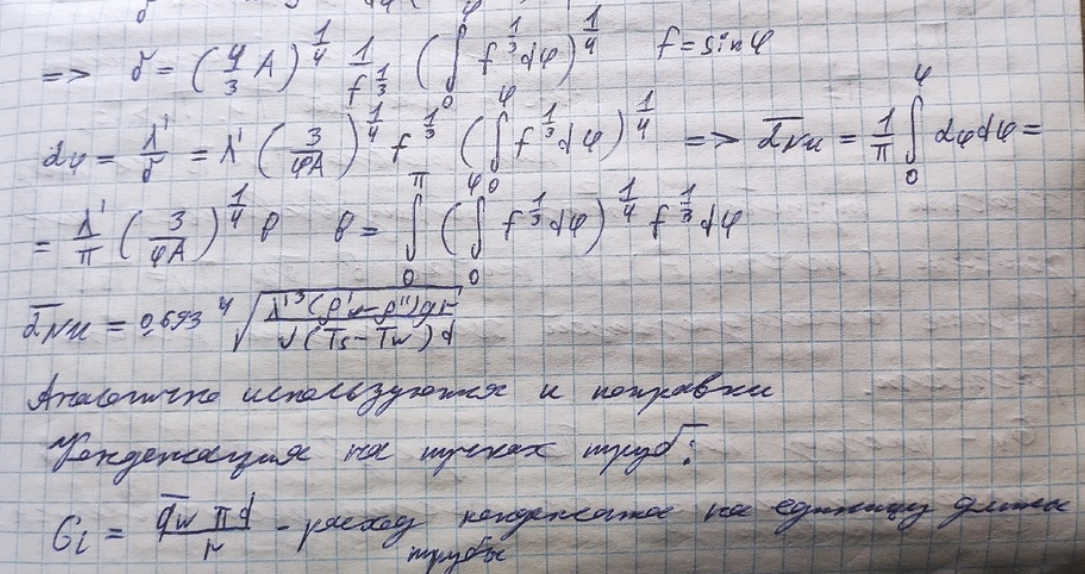 => δ = (4/3 A)^{1/4} 1/f^{1/3} (∫_0^φ f^{1/3} dφ)^{1/4} f = sin φ
α_φ = λ'/δ = λ' (3/φA)^{1/4} f^{1/3} (∫_0^φ f^{1/3} dφ)^{1/4} => ᾱ_{Nu} = 1/π ∫_0^φ α_φ dφ =
= λ'/π (3/φA)^{1/4} β β = ∫_0^π (∫_0^φ f^{1/3} dφ)^{1/4} f^{1/3} dφ
ᾱ_{Nu} = 0,693 ⁴√(λ'^3 (ρ' - ρ'') g r / ν (T_s - T_w) d)
Аналогично используются и поправки
Конденсация на пучках труб:
G_i = q̄_w π d / r - расход конденсата на единицу длины
трубы